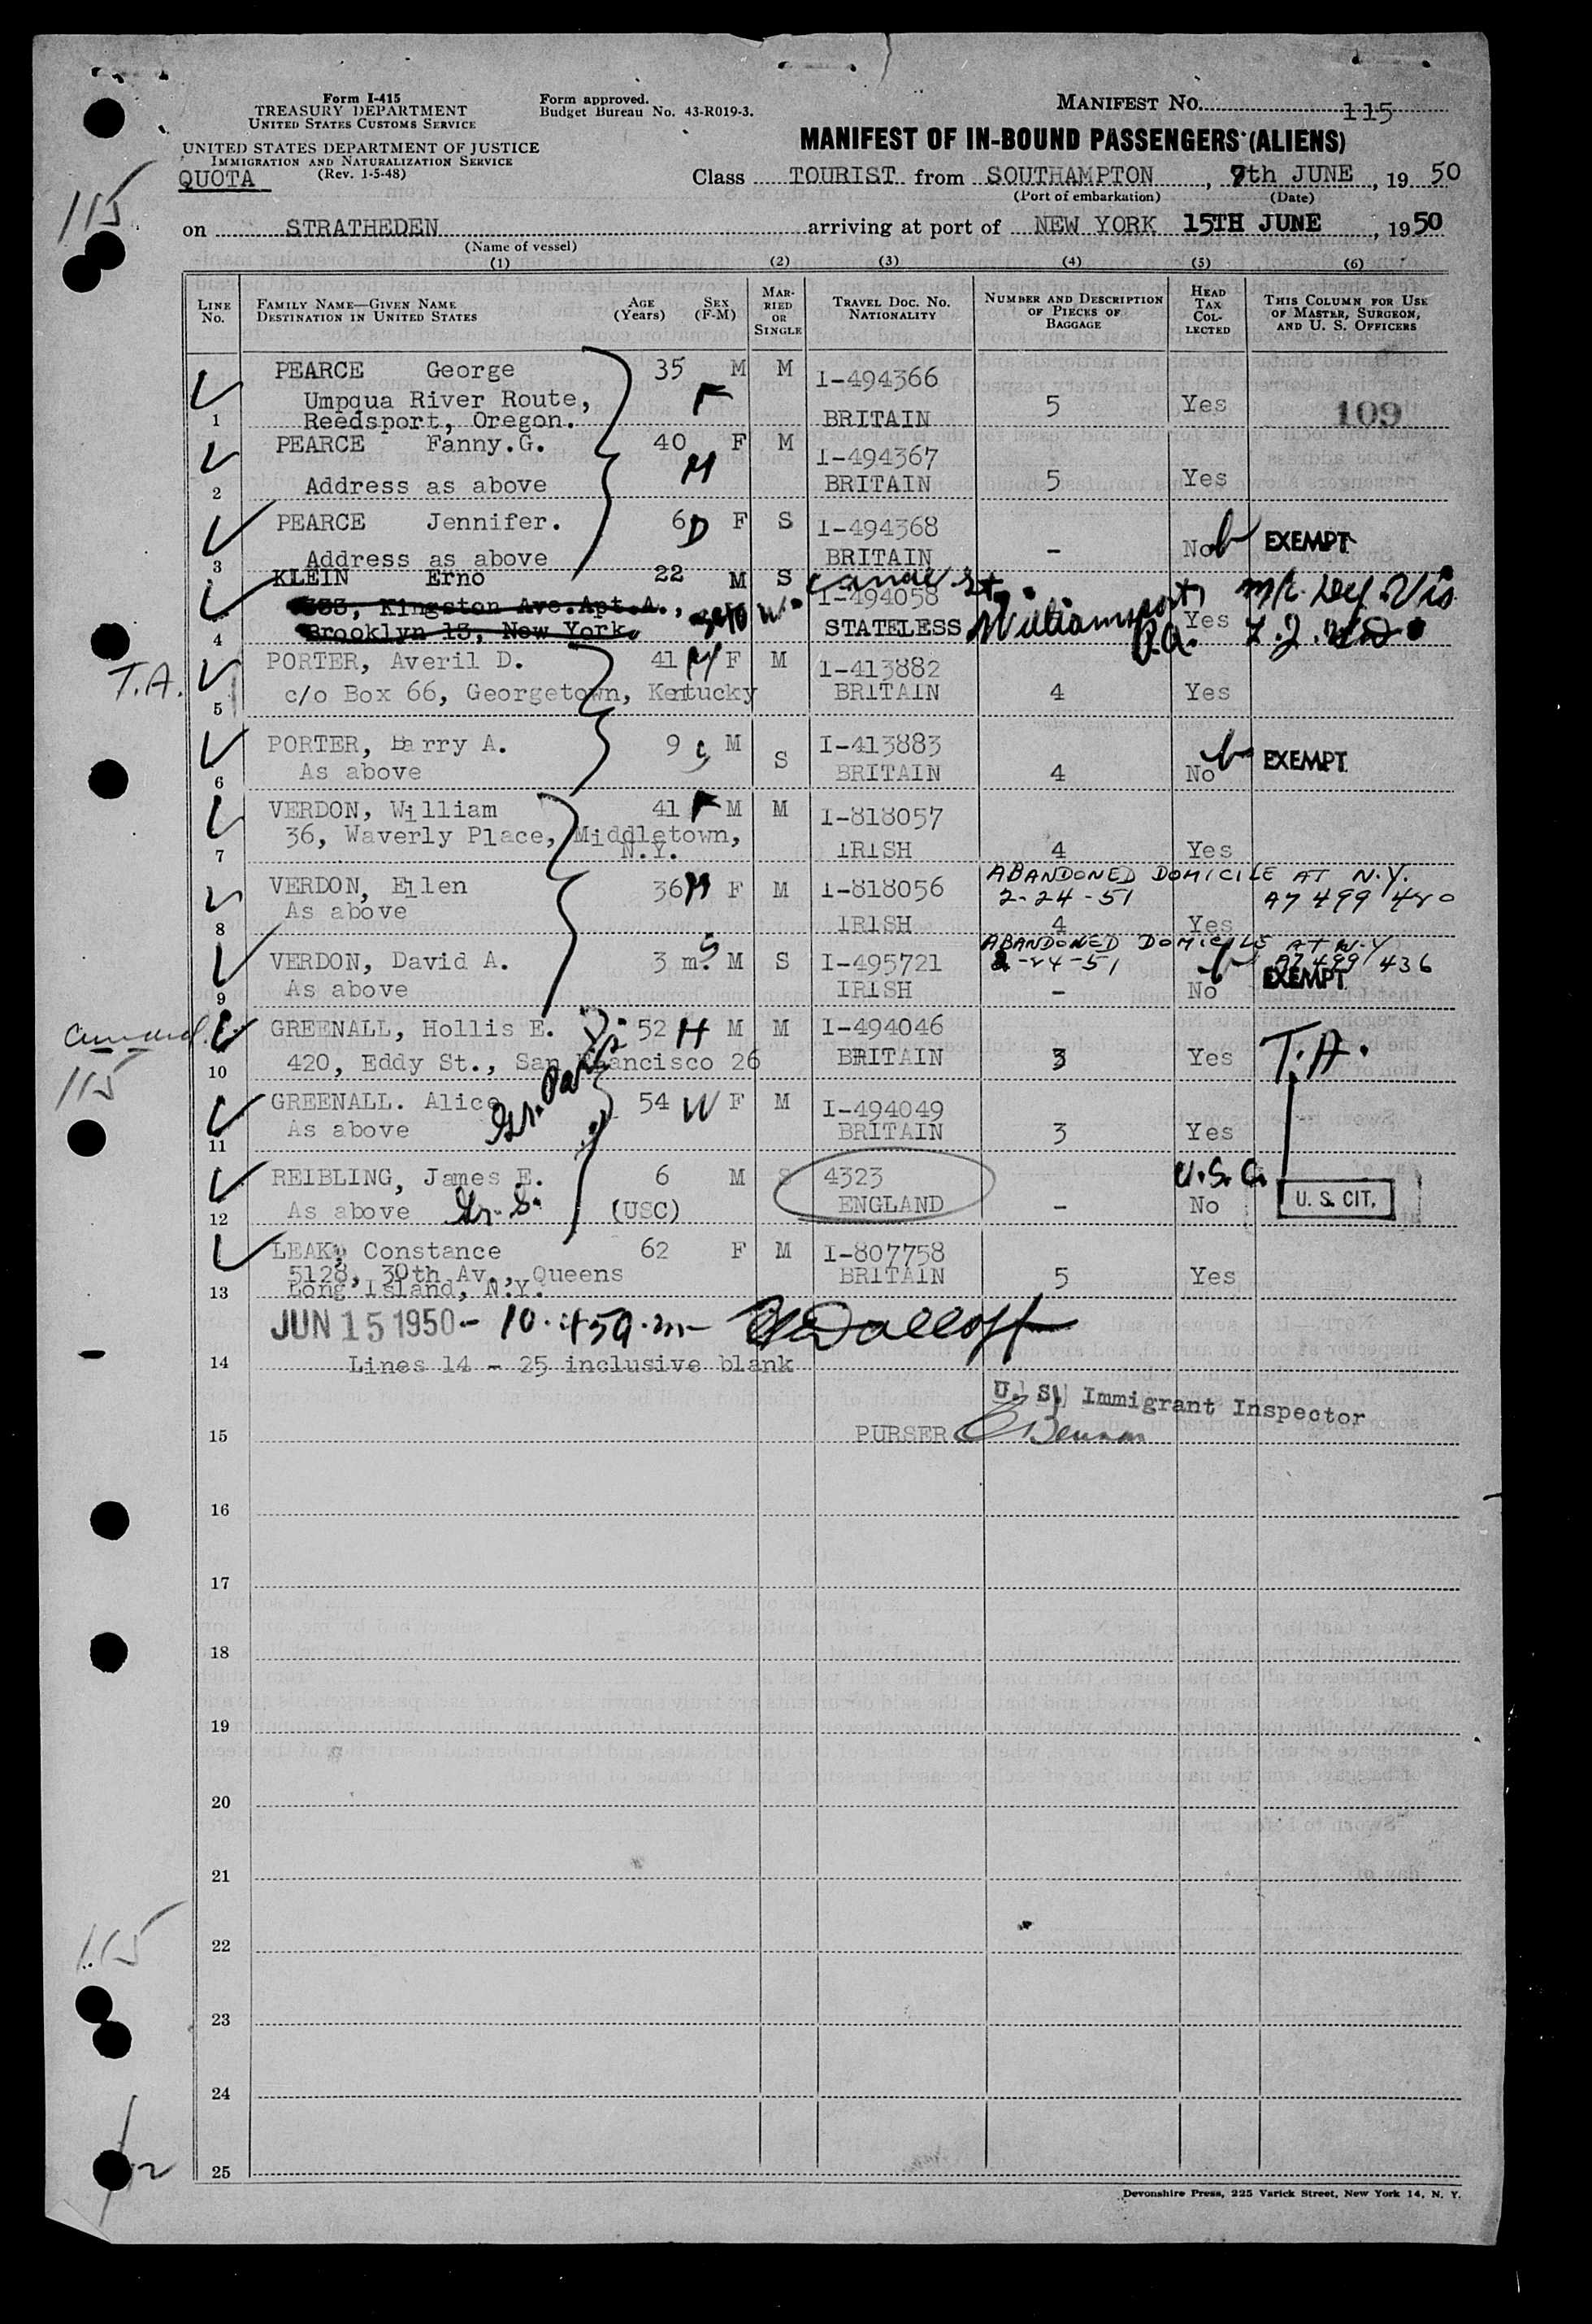 Form I-415
TREASURY DEPARTMENT
UNITED STATES CUSTOMS SERVICE
UNITED STATES DEPARTMENT OF JUSTICE
IMMIGRATION AND NATURALIZATION SERVICE
(Rev. 1-5-48)
QUOTA
Form approved.
Budget Bureau No. 43-R019-3.
MANIFEST No. 115
MANIFEST OF IN-BOUND PASSENGERS (ALIENS)
115
Class TOURIST from SOUTHAMPTON, 9th JUNE, 1950
(Port of embarkation) (Date)
on STRATHEDEN arriving at port of NEW YORK 15TH JUNE, 1950
(Name of vessel)
(1) (2) (3) (4) (5) (6)
LINE No. FAMILY NAME—GIVEN NAME DESTINATION IN UNITED STATES AGE (Years) SEX (F-M) MARRIED OR SINGLE TRAVEL DOC. No. NATIONALITY NUMBER AND DESCRIPTION OF PIECES OF BAGGAGE HEAD TAX COLLECTED THIS COLUMN FOR USE OF MASTER, SURGEON, AND U. S. OFFICERS
PEARCE George 35 M M I-494366
Umpqua River Route, F 5 Yes 109
1 Reedsport, Oregon. BRITAIN
PEARCE Fanny.G. 40 F M I-494367
M
2 Address as above BRITAIN 5 Yes
PEARCE Jennifer. 6 D F S I-494368
3 Address as above BRITAIN - No EXEMPT
KLEIN Erno 22 M S I-494058
333, Kingston Ave.Apt.A., W. St. Williamsport, Yes
4 Brooklyn 13, New York. STATELESS Pa.
PORTER, Averil D. 41 M F M I-413882
T.A.
5 c/o Box 66, Georgetown, Kentucky BRITAIN 4 Yes
PORTER, Barry A. 9 S M S I-413883
6 As above BRITAIN 4 No EXEMPT
VERDON, William 41 F M M I-818057
36, Waverly Place, Middletown,
7 N.Y. IRISH 4 Yes
VERDON, Ellen 36 M F M I-818056 ABANDONED DOMICILE AT N.Y.
As above 2-24-51 A7 499 480
8 IRISH 4 Yes
VERDON, David A. 3 m. S M S I-495721 ABANDONED DOMICILE AT N.Y.
2-24-51 A7 499 436
9 As above IRISH - No EXEMPT
GREENALL, Hollis E. 52 H M M I-494046
10 420, Eddy St., San Francisco 26 BRITAIN 3 Yes T.A.
115
GREENALL. Alice 54 W F M I-494049
Gr. Par
11 As above BRITAIN 3 Yes
REIBLING, James E. 6 M S 4323 U.S.C.
12 As above Gr. S. (USC) ENGLAND - No U. S. CIT.
LEAK, Constance 62 F M I-807758
5128, 30th Av., Queens BRITAIN 5 Yes
13 Long Island, N.Y.
JUN 15 1950 - 10.45 a.m.
14 Lines 14 - 25 inclusive blank
U. S. Immigrant Inspector
15 PURSER
16
17
18
19
20
21
115
22
23
24
25
Devonshire Press, 225 Varick Street, New York 14, N. Y.